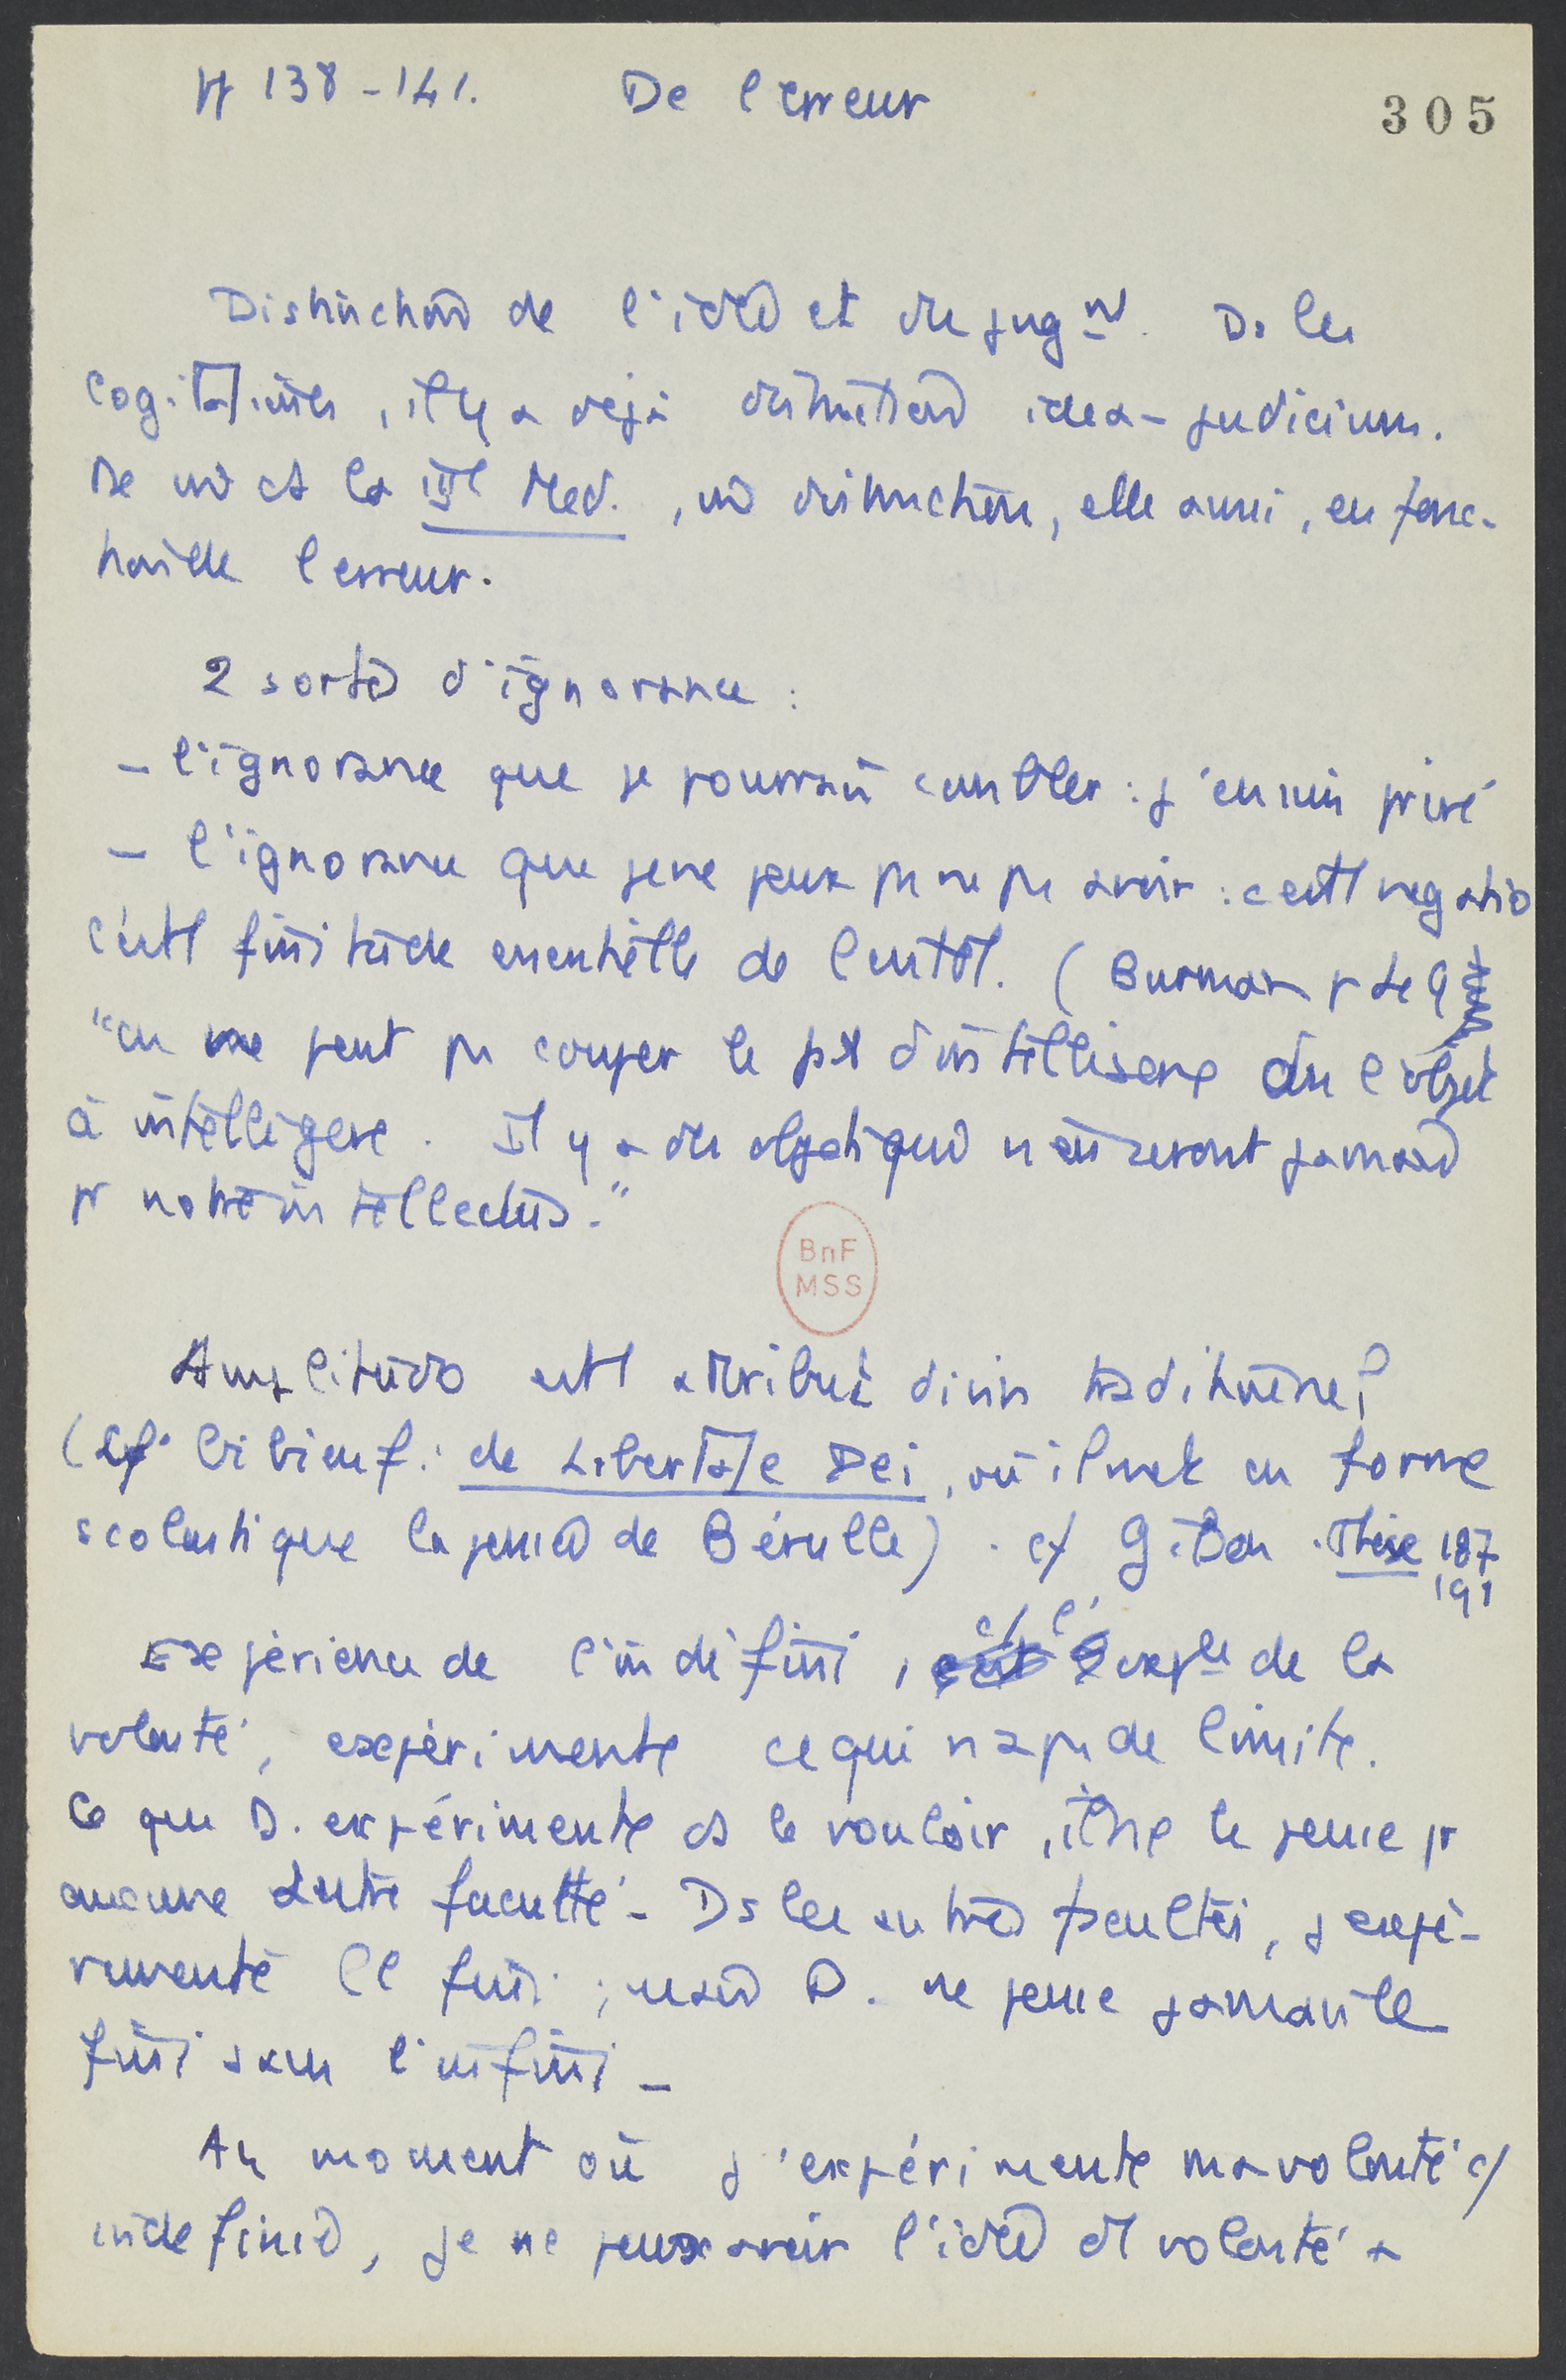 H 138-141. De l'erreur
305
Distinction de l'idée et du jugnt. Ds les
cogitationes, il y a déjà distinction idea-judicium.
De m̂ ds la IIIe Med., m̂ distinction, elle aussi, en fonc-
tion de l'erreur.
2 sortes d'ignorance :
- l'ignorance que je pourrais combler : j'en suis privé
- l'ignorance que je ne peux pas ne pas avoir : c'est 1 negatio
c'est 1 finitude essentielle de l'entdt. (Burman
"on ne peut pas couper le pt d'intelligere de l'objet
à intelligere. Il y a des objets qui n'en seront jamais
pr notre intellectus."
BnF
MSS
Amplitudo est 1 attribut divin traditionnel
(cf. Gibieuf : de Libertate Dei, où il met en forme
scolastique la pensée de Bérulle). cf Gilson. Thèse 187
191
Expérience de l'indéfini, c/ l' expce de la
volonté, expérimente ce qui n'a pas de limite.
Ce que D. expérimente ds le vouloir, il ne le pense pr
aucune autre faculté - Ds les autres facultés, j'expé-
rimente le fini ; mais D. ne pense jamais le
fini sans l'infini -
Au moment où j'expérimente ma volonté c/
indéfinie, je ne peux avoir l'idée d'1 volonté a